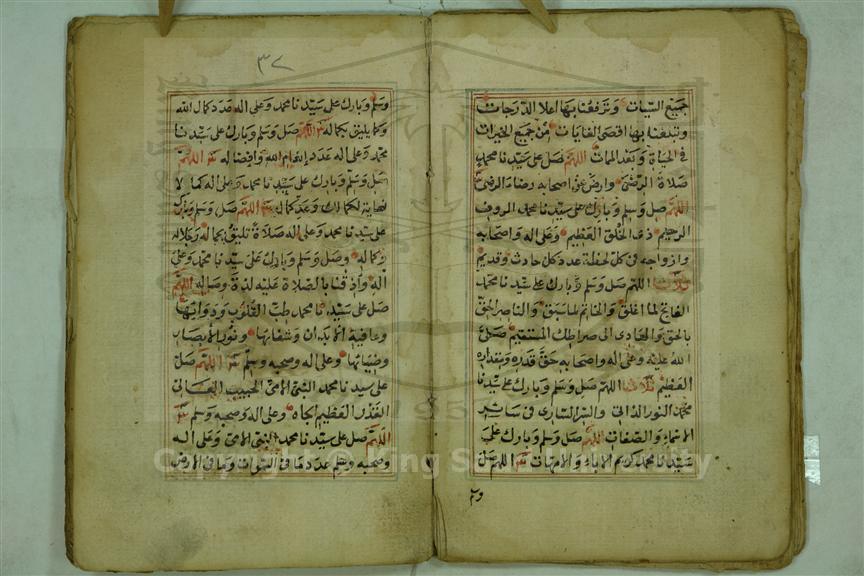 جميع السيات وترفعنا بها اعلا الدرجات
وتبلغنا بها اقصى الغايات من جميع الخيرات
في الحياة وبعد الممات اللهم صل على سيدنا محمد
صلاة الرضى وارض عن اصحابه رضاء الرضى
اللهم صل وسلم وبارك على سيدنا محمد الرووف
الرحيم ذي الخلق العظيم وعلى اله واصحابه
وازواجه في كل لحظة عدد كل حادث وقديم
ثلاثا اللهم صل وسلم وبارك على سيدنا محمد
الفاتح لما اغلق والخاتم لما سبق والناصر الحق
بالحق والهادي الى صراطك المستقيم صلى
الله عليه وعلى اله واصحابه حق قدره ومقداره
العظيم ثلاثا اللهم صل وسلم وبارك على سيدنا
محمد النور الذاتي والسر الساري في سائر
الاسماء والصفات اللهم صل وسلم وبارك على
سيدنا محمد كريم الاباء والامهات اللهم صل
وسلم
٣٧
وسلم وبارك على سيدنا محمد وعلى اله عدد كمال الله
وكما يليق بكماله اللهم صل وسلم وبارك على سيدنا
محمد وعلى اله عدد انعام الله وافضاله اللهم
صل وسلم وبارك على سيدنا محمد وعلى اله كما لا
نهاية لكمالك وعد كماله اللهم صل وسلم وبارك
على سيدنا محمد وعلى اله صلاة تليق بجماله وجلاله
وكماله وصل وسلم وبارك على سيدنا محمد وعلى
اله واذقنا بالصلاة عليه لذة وصاله اللهم
صل على سيدنا محمد طب القلوب ودوائها
وعافية الابدان وشفائها ونور الابصار
وضيائها وعلى اله وصحبه وسلم اللهم صل
على سيدنا محمد النبي الامي الحبيب العالي
القدر العظيم الجاه وعلى اله وصحبه وسلم
اللهم صل على سيدنا محمد النبي الامي وعلى اله
وصحبه وسلم عدد ما في السموات وما في الارض
Copyright © King Saud University
1957